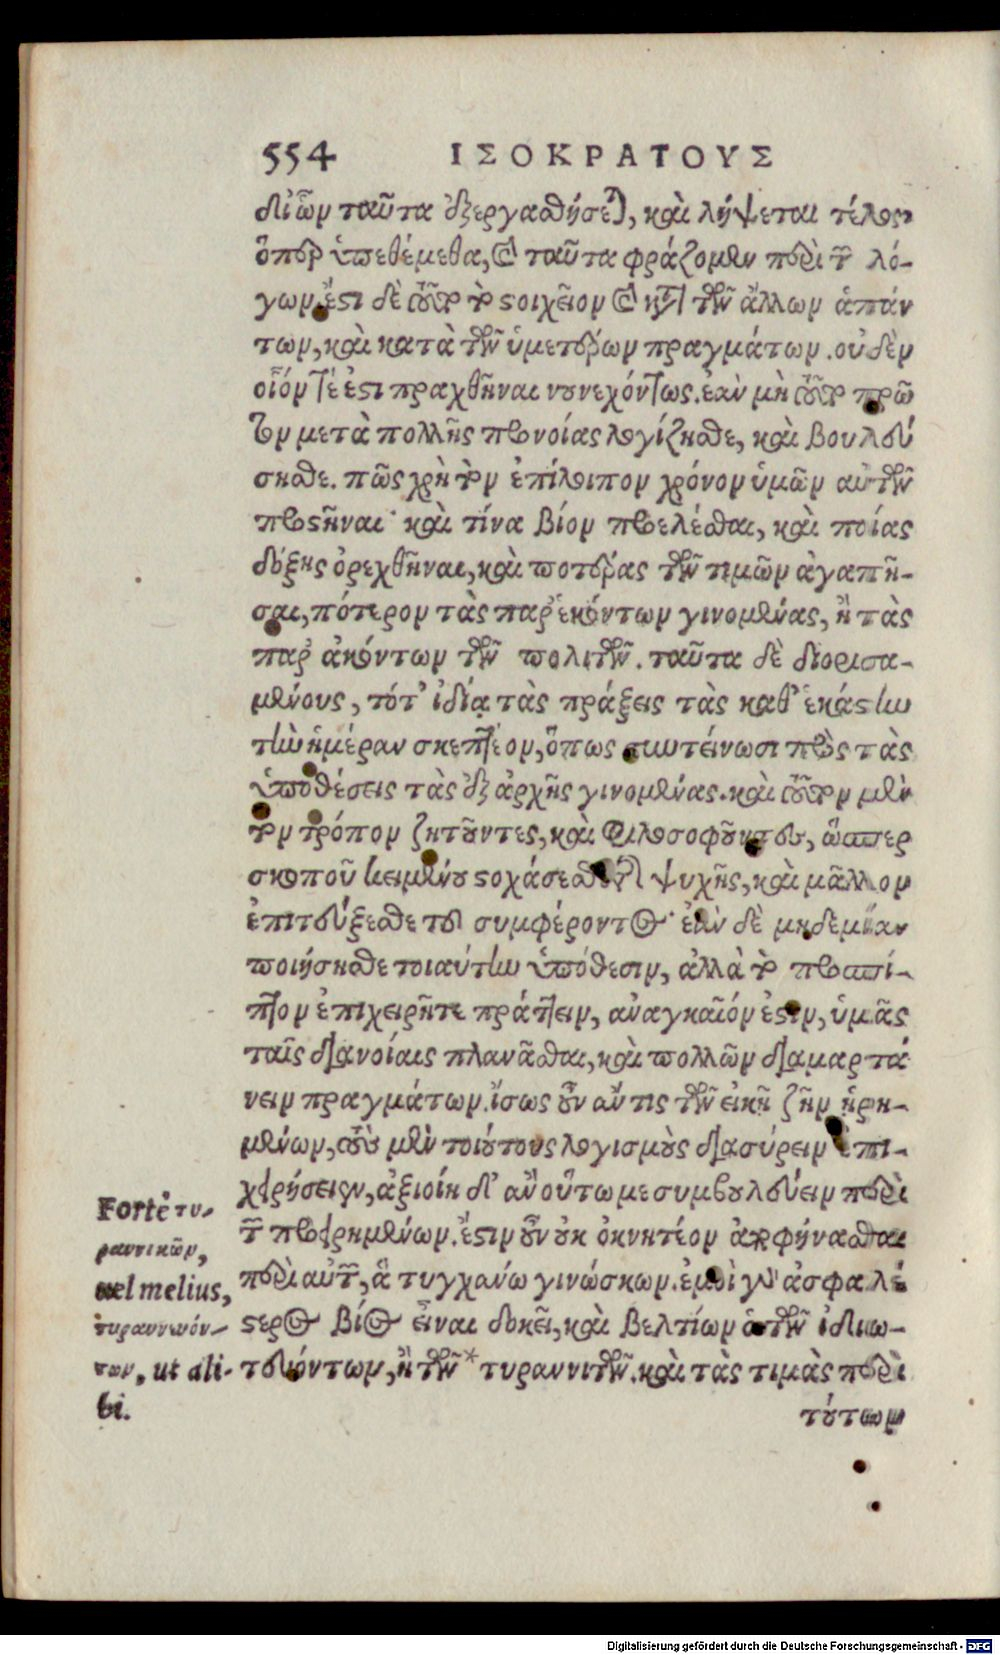 554 ΙΣΟΚΡΑΤΟΥΣ
δι᾽ ὧν ταῦτα ἐξεργασθήσεται, καὶ λήψεται τέλος,
ὅπερ ὑπεθέμεθα, καὶ ταῦτα φράζομεν περὶ τῶν λό-
γων. ἔστι δὲ τοῦτο τὸ στοιχεῖον καὶ κατὰ τῶν ἄλλων ἁπάν
των, καὶ κατὰ τῶν ὑμετέρων πραγμάτων. οὐδὲν
οἷόν τέ ἐστι πραχθῆναι νουνεχόντως. ἐὰν μὴ τοῦτο πρῶ
τον μετὰ πολλῆς προνοίας λογίζησθε, καὶ βουλεύ
σησθε. πῶς χρὴ τὸν ἐπίλοιπον χρόνον ὑμῶν αὐτῶν
προστῆναι· καὶ τίνα βίον προελέσθαι, καὶ ποίας
δόξης ὀρεχθῆναι, καὶ ποτέρας τῶν τιμῶν ἀγαπῆ-
σαι, πότερον τὰς παρ᾽ ἑκόντων γινομένας, ἢ τὰς
παρ᾽ ἀκόντων τῶν πολιτῶν. ταῦτα δὲ διορισα-
μένους, τότ᾽ ἰδίᾳ τὰς πράξεις τὰς καθ᾽ ἑκάστην
τὴν ἡμέραν σκεπτέον, ὅπως συντείνωσι πρὸς τὰς
ὑποθέσεις τὰς ἐξ ἀρχῆς γινομένας. καὶ τοῦτον μὲν
τὸν τρόπον ζητοῦντες, καὶ φιλοσοφοῦντες, ὥσπερ
σκοποῦ κειμένου στοχάσεσθε τῆς ψυχῆς, καὶ μᾶλλον
ἐπιτεύξεσθε τοῦ συμφέροντος· ἐὰν δὲ μηδεμίαν
ποιήσησθε τοιαύτην ὑπόθεσιν, ἀλλὰ τὸ προσπί-
πτον ἐπιχειρῆτε πράττειν, ἀναγκαῖόν ἐστιν, ὑμᾶς
ταῖς διανοίαις πλανᾶσθαι, καὶ πολλῶν διαμαρτά
νειν πραγμάτων. ἴσως οὖν ἄν τις τῶν εἰκῆ ζῆν ᾑρη-
μένων, τοὺς μὲν τοιούτους λογισμοὺς διασύρειν ἐπι-
χειρήσειεν, ἀξιοίη δ᾽ ἂν οὕτω με συμβουλεύειν περὶ
τῶν προειρημένων. ἔστιν οὖν οὐκ ὀκνητέον ἀποφήνασθαι
περὶ αὐτῶν, ἃ τυγχάνω γινώσκων. ἐμοὶ γὰρ ἀσφαλέ
στερος βίος εἶναι δοκεῖ, καὶ βελτίων ὁ τῶν ἰδιω-
τευόντων, ἢ τῶν *τυραννιτῶν. καὶ τὰς τιμὰς περὶ
τούτων
Fortè τυ-
ραννικῶν,
uel melius,
τυραννούν-
των, ut ali-
bi.
Digitalisierung gefördert durch die Deutsche Forschungsgemeinschaft - DFG